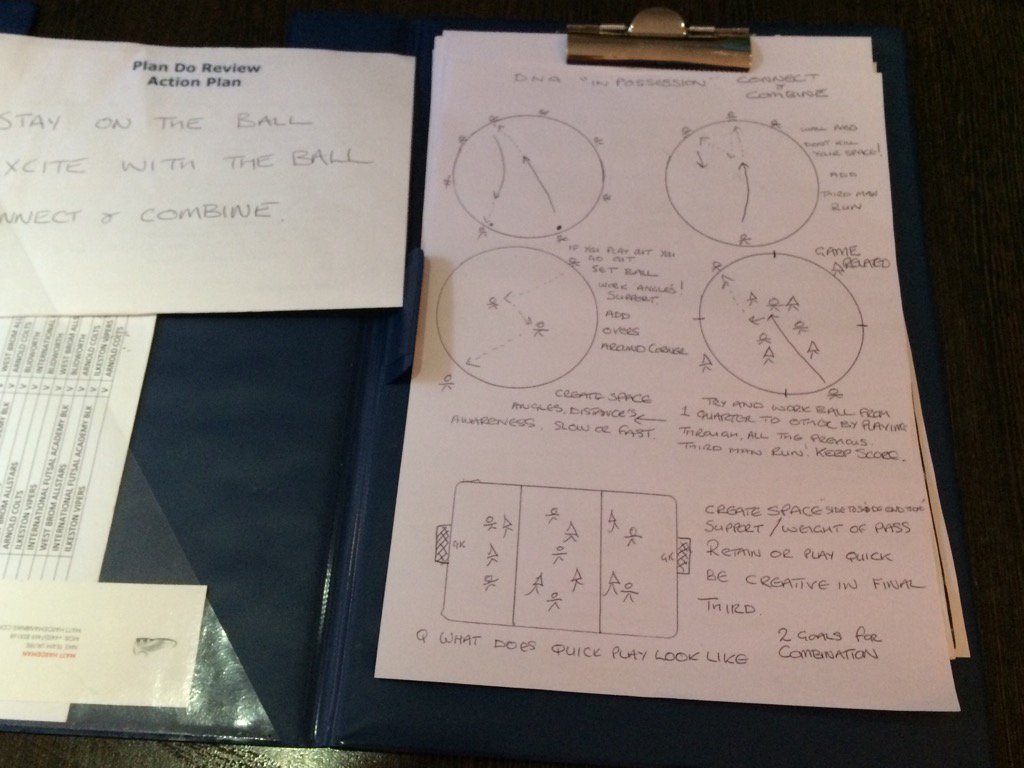 Plan Do Review
Action Plan
STAY ON THE BALL
XCITE WITH THE BALL
NNECT & COMBINE.
DNA "IN POSSESSION" CONNECT
& COMBINE
WALL PASS
DON'T KILL
YOUR SPACE!
ADD
THIRD MAN
RUN
IF YOU PLAY OUT YOU
GO OUT
SET BALL
WORK ANGLES!
SUPPORT
ADD
OVERS
AROUND CORNER
GAME
RELATED
CREATE SPACE
ANGLES, DISTANCES
AWARENESS, SLOW OR FAST.
TRY AND WORK BALL FROM
1 QUARTER TO OTHER BY PLAYING
THROUGH, ALL THE PREVIOUS.
THIRD MAN RUN! KEEP SCORE.
GK
GK
CREATE SPACE SIDE TO SIDE END TO END
SUPPORT / WEIGHT OF PASS
RETAIN OR PLAY QUICK
BE CREATIVE IN FINAL
THIRD.
Q WHAT DOES QUICK PLAY LOOK LIKE
2 GOALS FOR
COMBINATION
ARNOLD COLTS
WEST BROM ALLSTARS
INTERNATIONAL FUTSAL ACADEMY BLK
ILKESTON VIPERS
ARNOLD COLTS
ILKESTON VIPERS
INTERNATIONAL FUTSAL ACADEMY BLK
WEST BROM ALLSTARS
ARNOLD COLTS
ILKESTON VIPERS
MATT HARDEMAN